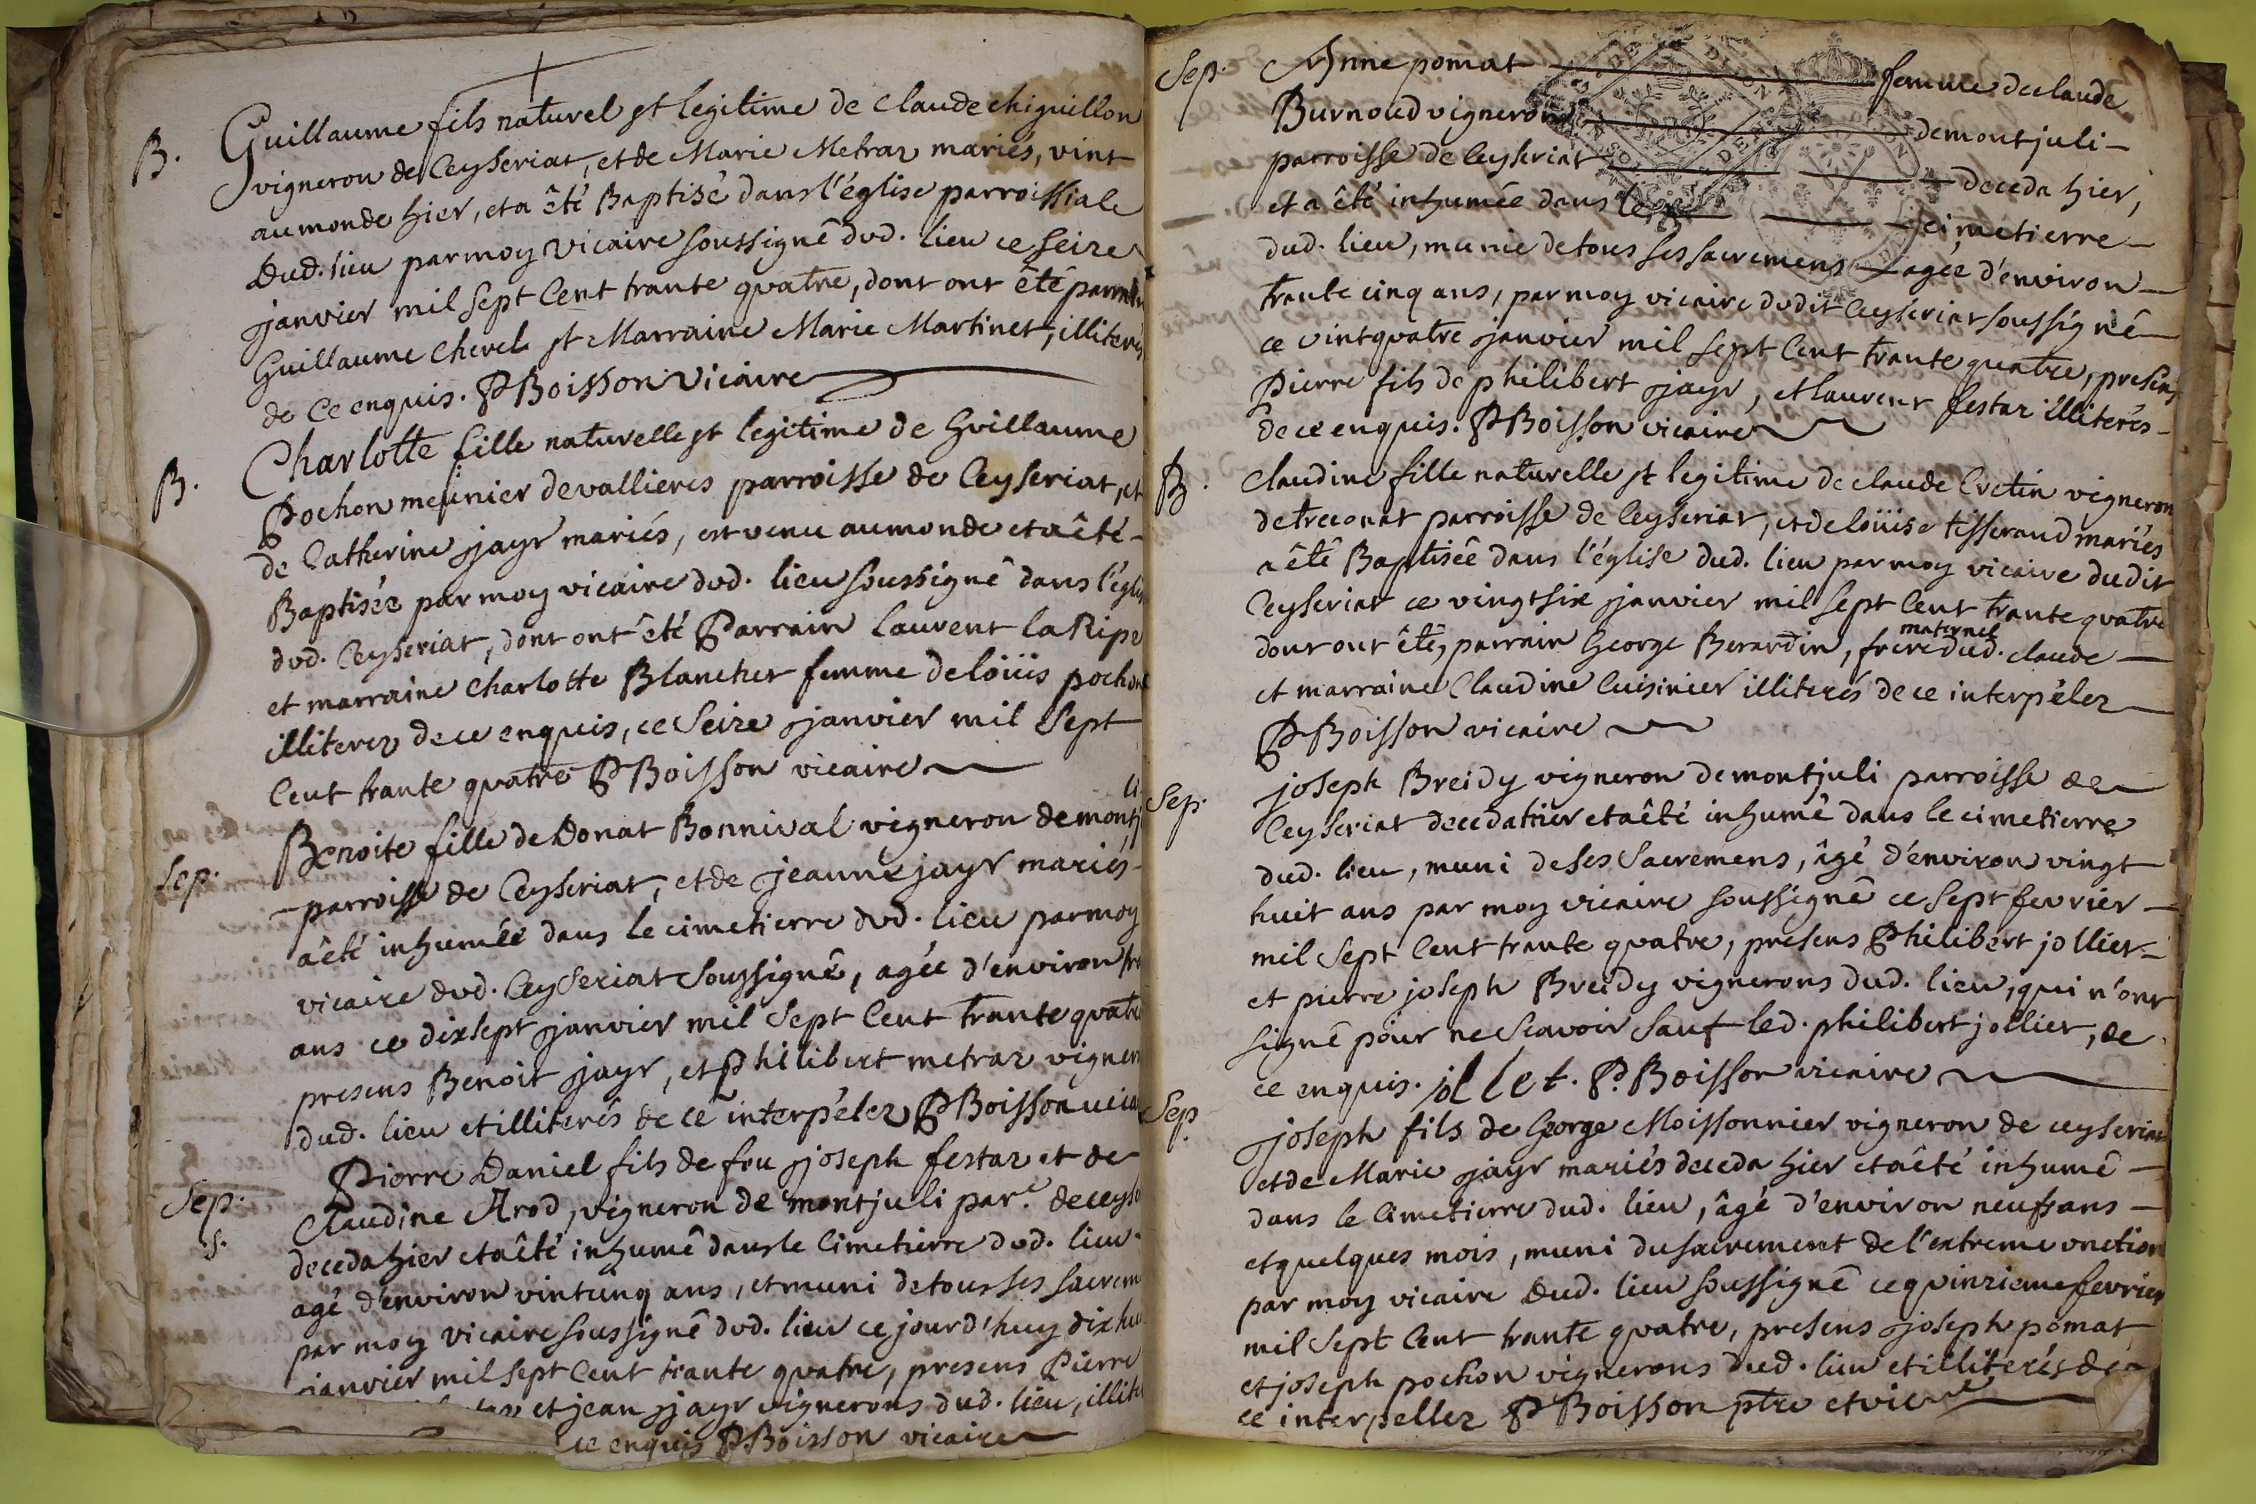 B. Guillaume fils naturel et legitime de Claude chiguillon
vigneron de Ceyseriat, et de Marie Metraz mariés, vint
au monde hier, et a êté Baptisé dans l'église parroissiale
Dud. lieu par moy vicaire soussigné dud. lieu ce seize
janvier mil sept Cent trante quatre, dont ont êté parrain
Guillaume Chevel et Marraine Marie Martinet, illiterés
de ce enquis. P Boisson vicaire
B. Charlotte fille naturelle et legitime de Guillaume
Pochon meunier de vallieres parroisse de Ceyseriat, et
de Catherine jayr mariés, est venu au monde et a êté
Baptisée par moy vicaire dud. lieu soussigné dans l'église
dud. Ceyseriat, dont ont êté Parrain laurent la Ripe
et marraine Charlotte Blanchet femme de loüis pochon
illiterez de ce enquis, ce Seize janvier mil Sept
Cent trante quatre P Boisson vicaire
Sep. Benoite fille de Donat Bonnival vigneron de montjuli
parroisse de Ceyseriat, et de jeanne jayr mariés
a êté inhumée dans le cimetierre dud. lieu par moy
vicaire dud. Ceyseriat Soussigné, agée d'environ
ans ce dixsept janvier mil Sept Cent trante quatre
presens Benoit jayr, et Philibert metraz vignerons
dud. lieu et illiterés de ce interpélez P Boisson vicaire
Sep. Pierre Daniel fils de feu joseph festaz et de
Claudine Arod, vigneron de montjuli par.e de ceys
S. deceda hier et a êté inhumé dans le Cimetierre dud. lieu
agé d'environ vintcinq ans, et muni de tous ses sacrem
par moy vicaire soussigné dud. lieu ce jourd'huy dix hui
janvier mil sept Cent trante quatre, presens Pierre
et jean jayr vignerons dud. lieu, illite
ce enquis P Boisson vicaire
Sep. Anne pomat femme de claude
Burnoud vigneron de montjuli
parroisse de Ceyseriat deceda hier,
et a êté inhumée dans le cimetierre
dud. lieu, munie de tous ses sacremens agée d'environ
trante cinq ans, par moy vicaire dudit Ceyseriat soussigné
ce vintquatre janvier mil sept Cent trante quatre, presens
Pierre fils de philibert jayr, et laurent festaz illiterés
de ce enquis. P Boisson vicaire
B. Claudine fille naturelle et legitime de claude Cretin vigneron
de treconat parroisse de Ceyseriat, et de loüise tisserand mariés
a êté Baptisée dans l'église dud. lieu par moy vicaire dudit
Ceyseriat ce vingtsix janvier mil sept Cent trante quatre
dont ont êté, parrain George Berardin, frere maternel dud. claude
et marraine Claudine Cuisinier illiterés de ce interpélez
P Boisson vicaire
Sep. joseph Breidy vigneron de montjuli parroisse de
Ceyseriat deceda hier et a êté inhumé dans le cimetierre
dud. lieu, muni de ses Sacremens, âgé d'environ vingt
huit ans par moy vicaire soussigné ce sept fevrier
mil Sept Cent trante quatre, presens Philibert jollier
et pierre joseph Breidy vignerons dud. lieu, qui n'ont
signé pour ne Scavoir Sauf led. philibert jollier, de
ce enquis. jollet. P. Boisson vicaire
Sep. joseph fils de George Moissonnier vigneron de ceyseriat
et de Marie jayr mariés deceda hier et a êté inhumé
dans le Cimetierre dud. lieu, âgé d'environ neuf ans
et quelques mois, muni du sacrement de l'extreme onction
par moy vicaire Dud. lieu soussigné ce quinzieme fevrier
mil Sept Cent trante quatre, presens joseph pomat
et joseph pochon vignerons dud. lieu et illiterés de
ce interpellez P Boisson ptre et vicre